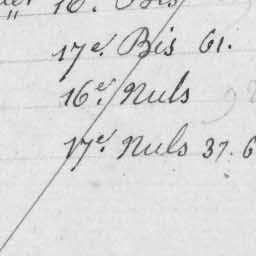 16e. Bis
17e. Bis 61.
16e. Nuls
17e. Nuls 37.6